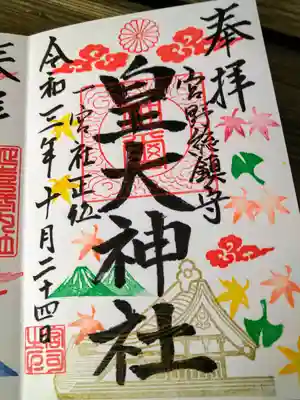 奉拝
宮野総鎮守
皇大神社
一宮社正位
令和三年十月二十四日